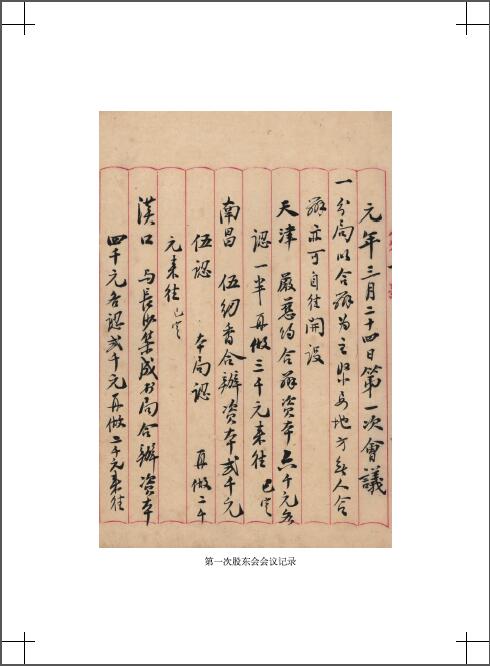 元年三月二十四日第一次會議
一分局以合辦為主緊要地方無人合
辦亦可自往開設
天津 嚴慈約合辦資本六千元各
認一半再做三千元來往 已定
南昌 伍幼香合辦資本貳千元
伍認 本局認 再做二千
元來往 已定
漢口 與長沙集成书局合辦資本
四千元各認貳千元再做二千元來往
第一次股东会会议记录